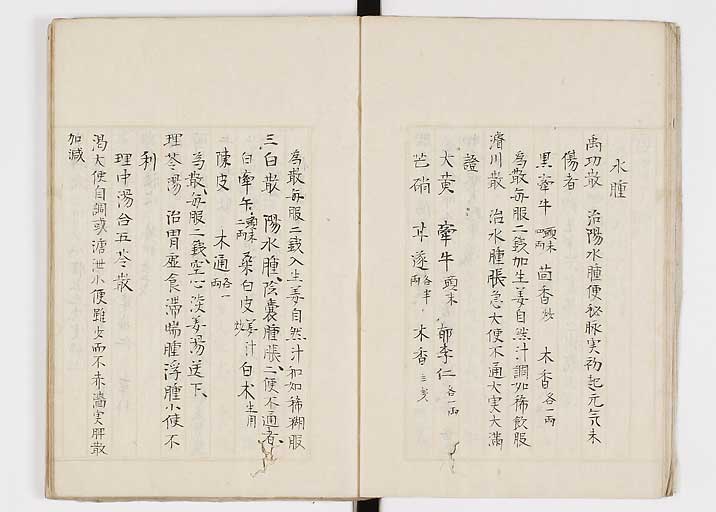 水腫
禹功散 治陽水腫便秘脉実初起元气未
傷者
黒牽牛 頭末四両 茴香 炒 木香 各一両
為散毎服二戔加生姜自然汁調如稀飲服
濬川散 治水腫脹急大便不通大実大満
證
大黄 牽牛 頭末 郁李仁 各一両
芒硝 甘遂 各半両 木香 三戔
為散毎服二戔入生姜自然汁和如稀糊服
三白散 陽水腫陰囊腫脹二便不通者
白牽牛 頭末二両 桑白皮 姜汁炒 白术 生用
陳皮 木通 各一両
為散毎服二戔空心淡姜湯送下
理苓湯 治胃虚食滞喘腫浮腫小便不
利
理中湯合五苓散
渇大便自調或溏泄小便雖少而不赤濇実脾散
加減